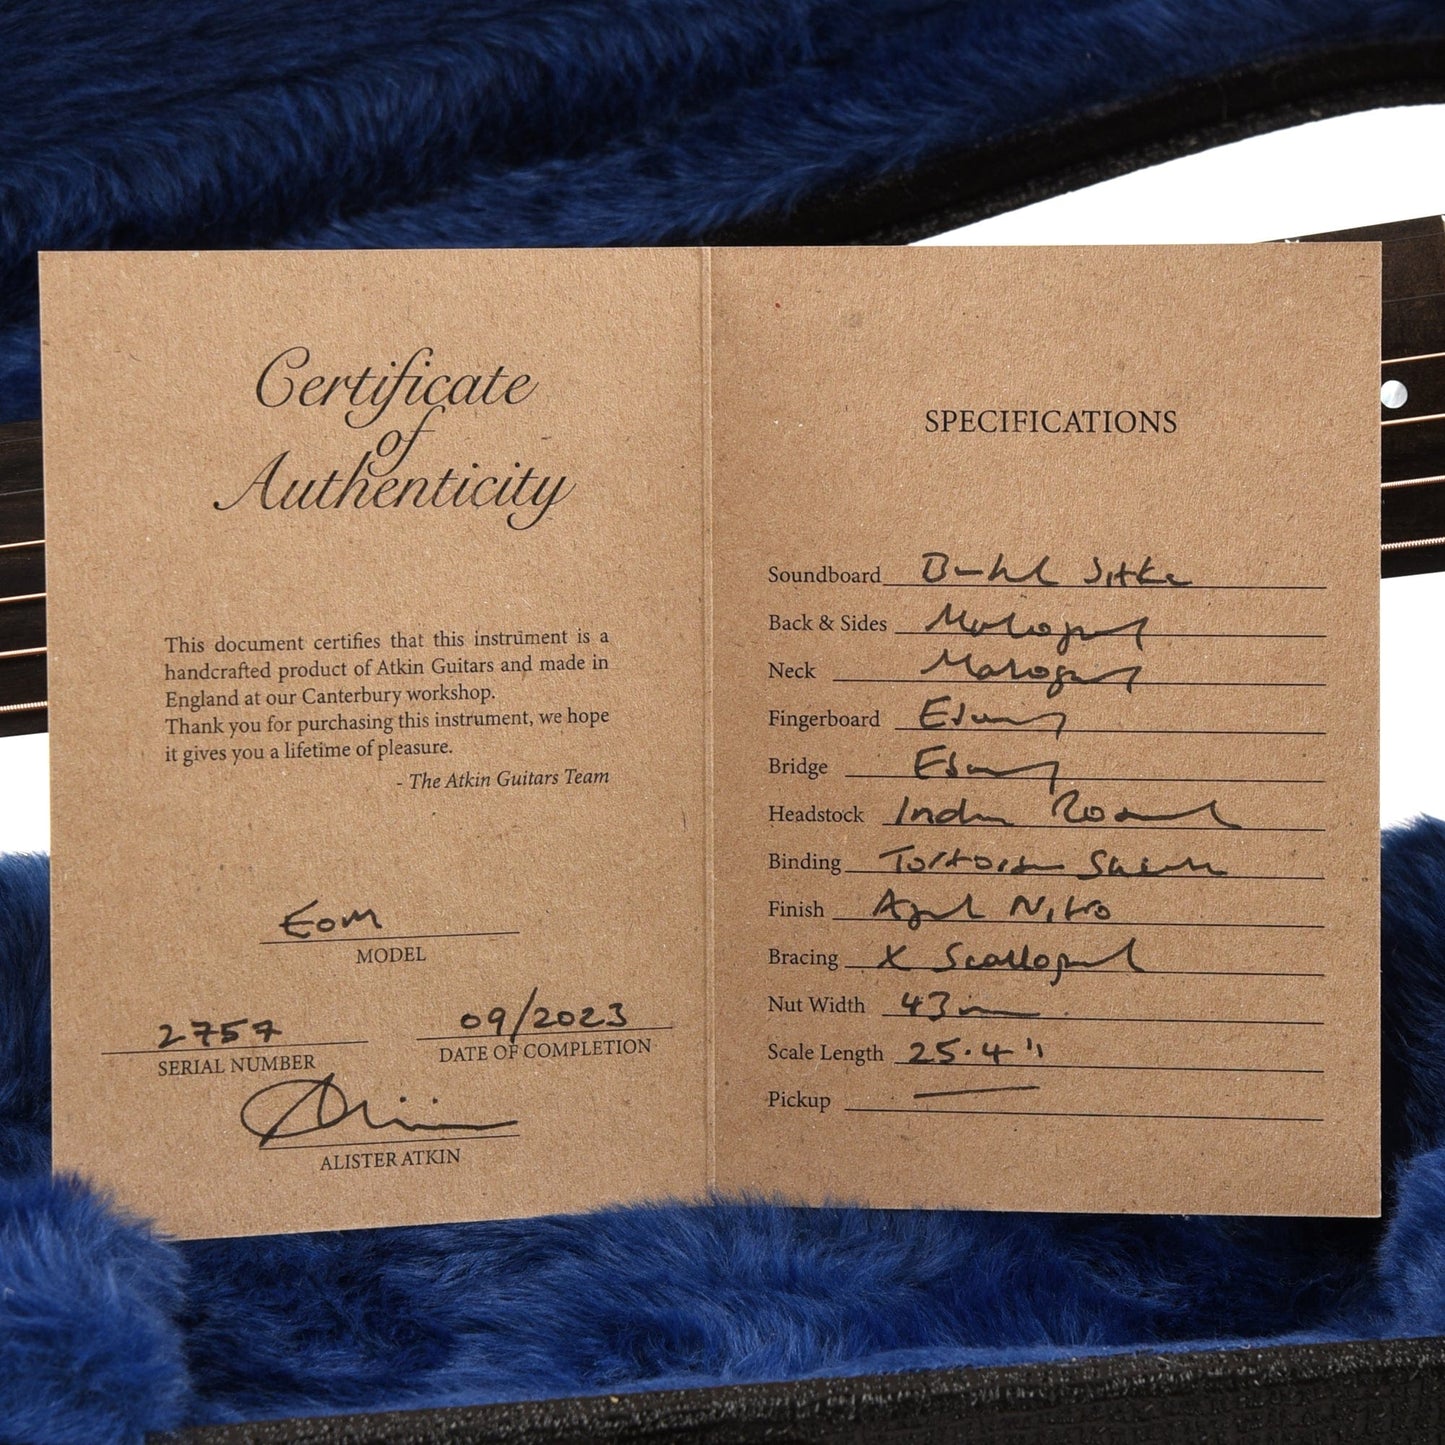 Certificate
of
Authenticity
This document certifies that this instrument is a
handcrafted product of Atkin Guitars and made in
England at our Canterbury workshop.
Thank you for purchasing this instrument, we hope
it gives you a lifetime of pleasure.
- The Atkin Guitars Team
EOM
MODEL
2757
SERIAL NUMBER
09/2023
DATE OF COMPLETION
ALISTER ATKIN
SPECIFICATIONS
Soundboard Baked Sitka
Back & Sides Mahogany
Neck Mahogany
Fingerboard Ebony
Bridge Ebony
Headstock Indian Rosewood
Binding Tortoise Shell
Finish Aged Nitro
Bracing X Scalloped
Nut Width 43mm
Scale Length 25.4"
Pickup —